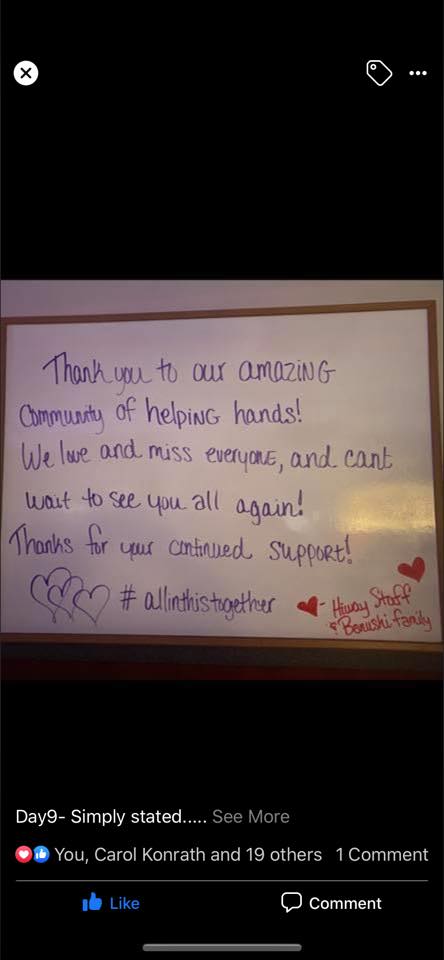 Thank you to our amaziNG
Community of helpiNG hands!
We love and miss everyone, and cant
wait to see you all again!
Thanks for your continued support!
# allinthistogether
- Hiway Staff
& Banushi family
Day9- Simply stated..... See More
You, Carol Konrath and 19 others 1 Comment
Like Comment